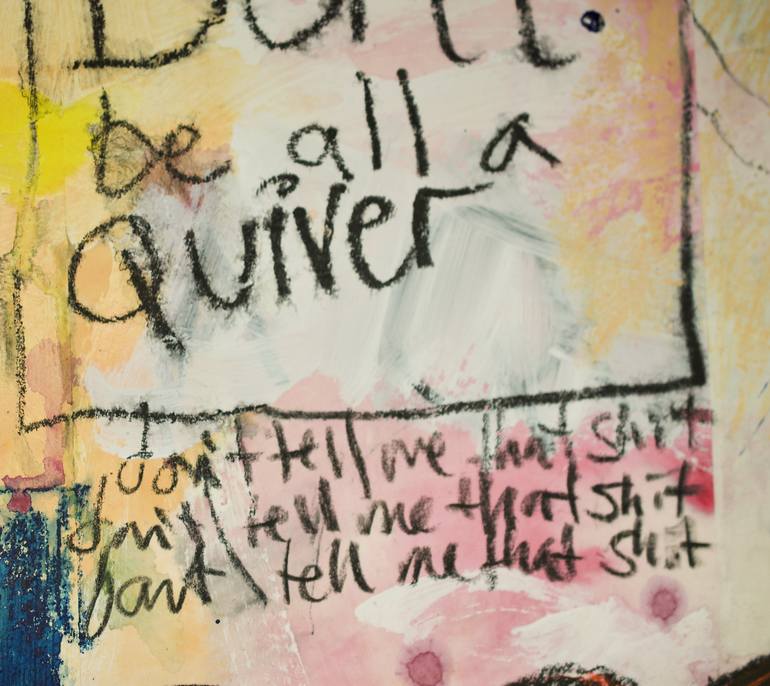 Don't
be all a
Quiver
don't tell me that shit
don't tell me that shit
don't tell me that shit